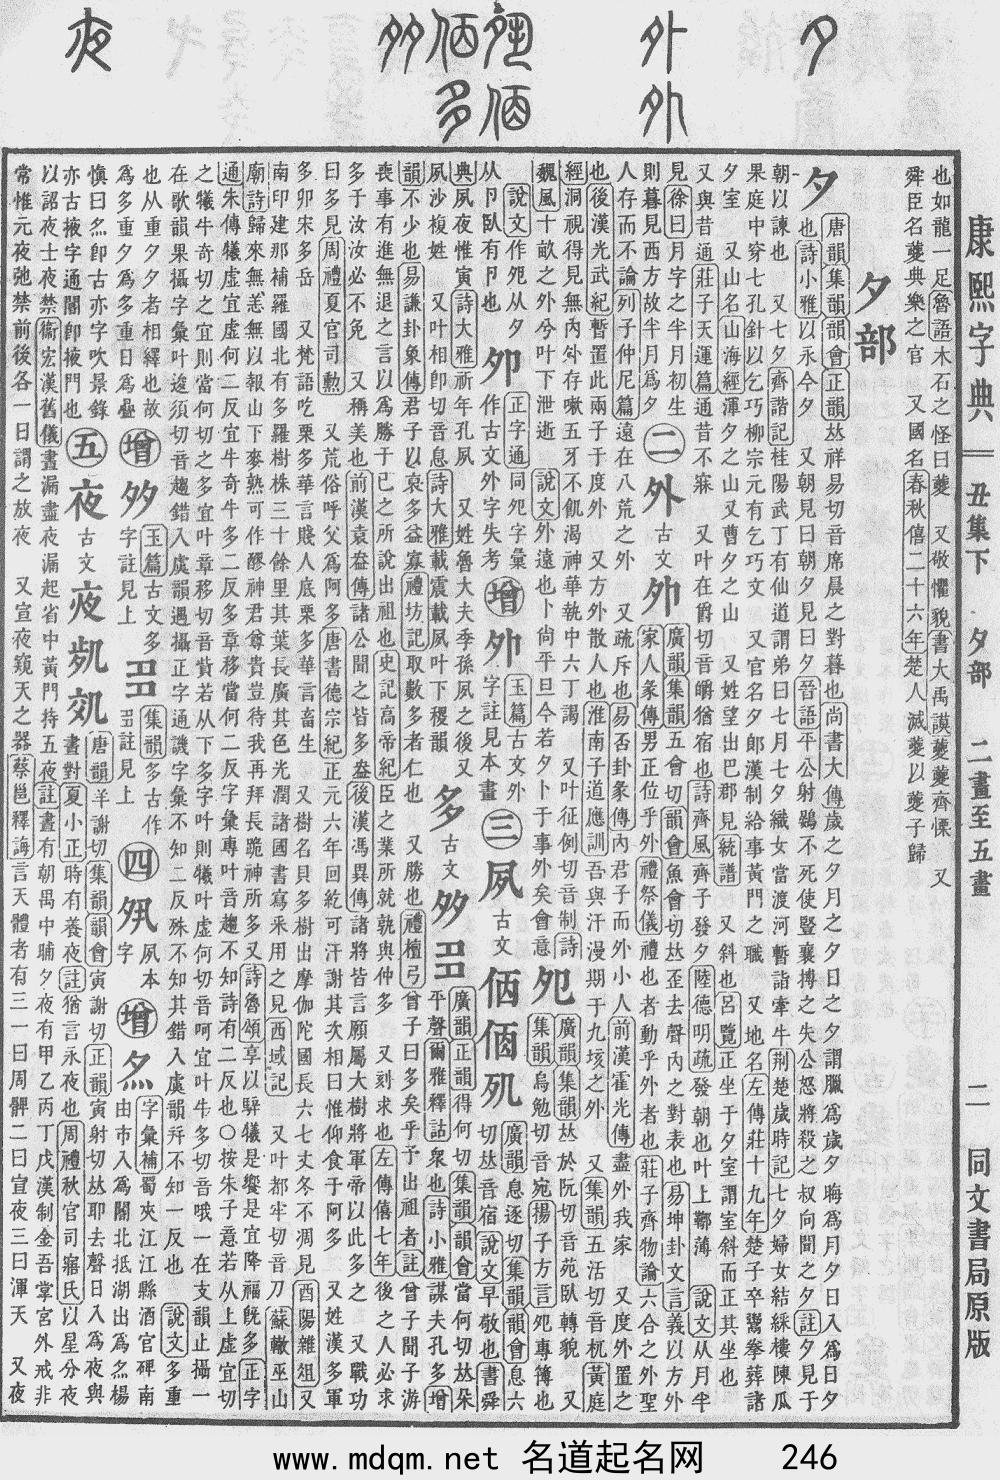 康熙字典 丑集下 夕部 二畫至五畫 二 同文書局原版
也如龍一足魯語木石之怪曰夔 又敬懼貌書大禹謨夔夔齊慄 又
舜臣名夔典樂之官 又國名春秋僖二十六年楚人滅夔以夔子歸
夕部
夕 唐韻集韻韻會正韻𠀤祥易切音席晨之對暮也尚書大傳歲之夕月之夕日之夕謂臘爲歲夕晦爲月夕日入爲日夕
也詩小雅以永今夕 又朝見曰朝夕見曰夕晉語平公射鴳不死使豎襄搏之失公怒將殺之叔向聞之夕註夕見于
朝以諫也 又七夕齊諧記桂陽武丁有仙道謂弟曰七月七夕織女當渡河暫詣牽牛荆楚歲時記七夕婦女結綵樓陳瓜
果庭中穿七孔針以乞巧柳宗元有乞巧文 又官名夕郞漢制給事黃門之職 又地名左傳莊十九年楚子卒鬻拳葬諸
夕室 又山名山海經渾夕之山又曹夕之山 又姓望出巴郡見統譜 又斜也呂覽正坐于夕室謂室斜而正其坐也
又與昔通莊子天運篇通昔不寐 又叶在爵切音皭猶宿也詩齊風齊子發夕陸德明疏發朝也叶上鞹薄 說文从月半
見徐曰月字之半月初生
則暮見西方故半月爲夕
二 外 古文 𡖄 廣韻集韻五會切韻會魚會切𠀤歪去聲內之對表也易坤卦文言義以方外
家人彖傳男正位乎外禮祭儀禮也者動乎外者也莊子齊物論六合之外聖
人存而不論列子仲尼篇遠在八荒之外 又疏斥也易否卦彖傳內君子而外小人前漢霍光傳盡外我家 又度外置之
也後漢光武紀暫置此兩子于度外 又方外散人也淮南子道應訓吾與汗漫期于九垓之外 又集韻五活切音杌黃庭
經洞視得見無內外存嗽五牙不飢渴神華執中六丁謁 又叶征例切音制詩
魏風十畝之外兮叶下泄逝 說文外遠也卜尚平旦今若夕卜于事外矣會意
夗 廣韻集韻𠀤於阮切音苑臥轉貌 又
集韻烏勉切音宛揚子方言夗專簙也
說文作夗从夕
从卪臥有卪也
夘 正字通同夗字彙
作古文外字失考
增 外 玉篇古文外
字註見本畫
三 夙 古文 㐁㑉𡖊 廣韻息逐切集韻韻會息六
切𠀤音宿說文早敬也書舜
典夙夜惟寅詩大雅祈年孔夙 又姓魯大夫季孫夙之後又
夙沙複姓 又叶相卽切音息詩大雅載震載夙叶下稷韻
多 古文 𡖇𡖈 廣韻正韻得何切集韻韻會當何切𠀤朵
平聲爾雅釋詁衆也詩小雅謀夫孔多增
韻不少也易謙卦象傳君子以裒多益寡禮坊記取數多者仁也 又勝也禮檀弓曾子曰多矣乎予出祖者註曾子聞子游
喪事有進無退之言以爲勝于已之所說出祖也史記高帝紀臣之業所就孰與仲多 又刻求也左傳僖七年後之人必求
多于汝汝必不免 又稱美也前漢袁盎傳諸公聞之皆多盎後漢馮異傳諸將皆言願屬大樹將軍帝以此多之 又戰功
曰多見周禮夏官司勲 又荒俗呼父爲阿多唐書德宗紀正元六年回紇可汗謝其次相曰惟仰食于阿多 又姓漢多軍
多卯宋多岳 又梵語吃栗多華言賤人底栗多華言畜生 又樹名貝多樹出摩伽陀國長六七丈冬不凋見酉陽雜俎又
南印建那補羅國北有多羅樹株三十餘里其葉長廣其色光潤諸國書寫采用之見西域記 又叶都牢切音刀蘇轍巫山
廟詩歸來無恙無以報山下麥熟可作醪神君尊貴豈待我再拜長跪神所多又詩魯頌享以騂犧是饗是宜降福旣多正字
通朱傳犧虛宜虛何二反宜牛奇牛多二反多章移當何二反字彙專叶音趨不知詩有二反也〇按朱子意若从上虛宜切
之犧牛奇切之宜則當何切之多宜叶章移切音貲若从下多字叶則犧叶虛何切音呵宜叶牛多切音哦一在支韻止攝一
在歌韻果攝字彙叶逡須切音趨錯入虞韻遇攝正字通譏字彙不知二反殊不知其錯入虞韻幷不知一反也 說文多重
也从重夕夕者相繹也故
爲多重夕爲多重日爲疊
增 𡖇 玉篇古文多
字註見上
𡖈 集韻多古作
𡖈註見上
四 㚈 夙本
字
增 𡖍 字彙補蜀夾江江縣酒官碑南
由市入爲闤北抵湖出爲𡖍楊
愼曰𡖍卽古亦字吹景錄
亦古掖字通闈卽掖門也
五 夜 古文 唐韻羊謝切集韻韻會寅謝切正韻寅射切𠀤耶去聲日入爲夜與
晝對夏小正時有養夜註猶言永夜也周禮秋官司寤氏以星分夜
以詔夜士夜禁衞宏漢舊儀晝漏盡夜漏起省中黃門持五夜註晝有朝禺中晡夕夜有甲乙丙丁戊漢制金吾掌宮外戒非
常惟元夜弛禁前後各一日謂之放夜 又宣夜窺天之器蔡邕釋誨言天體者有三一曰周髀二曰宣夜三曰渾天 又夜
www.mdqm.net 名道起名网 246